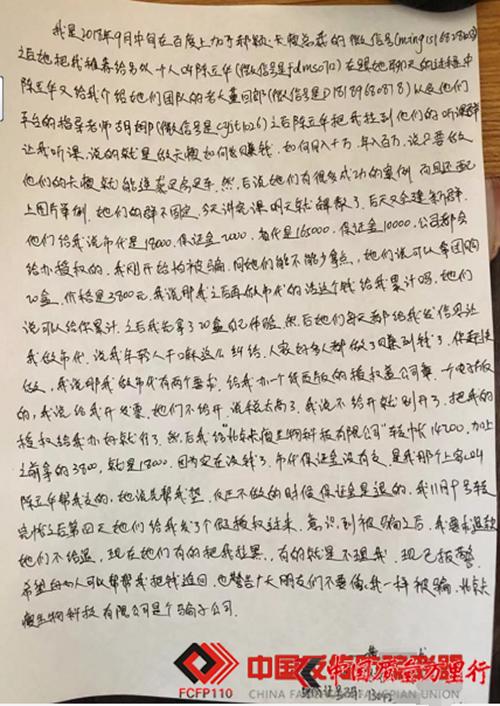 我是2018年9月中旬在百度上加了郝颖:天獭总裁的微信号(
之后她把我推荐给另外一个人叫陈立华(微信号是 )在跟她聊天的过程中
陈立华又给我介绍她们团队的老大董回郎(微信号是D18189680818)以及他们
平台的指导老师胡娜(微信号是 )之后陈立华把我拉到他们的听课群
让我听课,说的就是做天獭如何能赚钱。如何月入十万,年入百万,说只要做
他们的天獭就能 然后说她们有很多成功的案例 而且还配
上图片举例,她们的群不固定,今天讲完课明天就解散了,后天又会建新群。
他们给我说市代是18000,保证金2000,省代是165000,保证金10000,公司都会
给办授权的,我刚开始怕被骗,问她们能不能少拿点,她们说可以拿团购
20盒,价格是3800元,我说那我之后再做市代的话这个钱给我累计吗,她们
说可以给你累计,之后我先拿了20盒自己体验,然后她们每天都给我发信息让
我做市代,说我年轻人干嘛这么纠结,人家好多人都做了赚到钱了,你赶快
做,我说那我做市代有两个要求,给我办一个纸质版的授权盖公司章,一个电子版
的,我说给我开发票,她们不给开,说税太高了,我说不给开就别开了,把我的
授权给我办好就行了,然后我给" 生物科技有限公司"转帐14200,加上
之前拿的3800,就是18000,因为实在没钱了,市代保证金没有交,是我那个上家叫
陈立华帮我交的,她说先帮我垫,反正不做的时候保证金是退的,我11月9号转
完帐之后第四天她们给我发了个假授权过来,意识到被骗之后,我要求退款
她们不给退,现在她们有的把我拉黑,有的就是不理我,现已报警
希望 可以帮帮我把钱追回,也警告广大朋友们不要像我一样被骗,
瘦生物科技有限公司是个骗子公司.
FCFP110
中国反
CHINA FA FANGPIAN UNION
中国 万里行